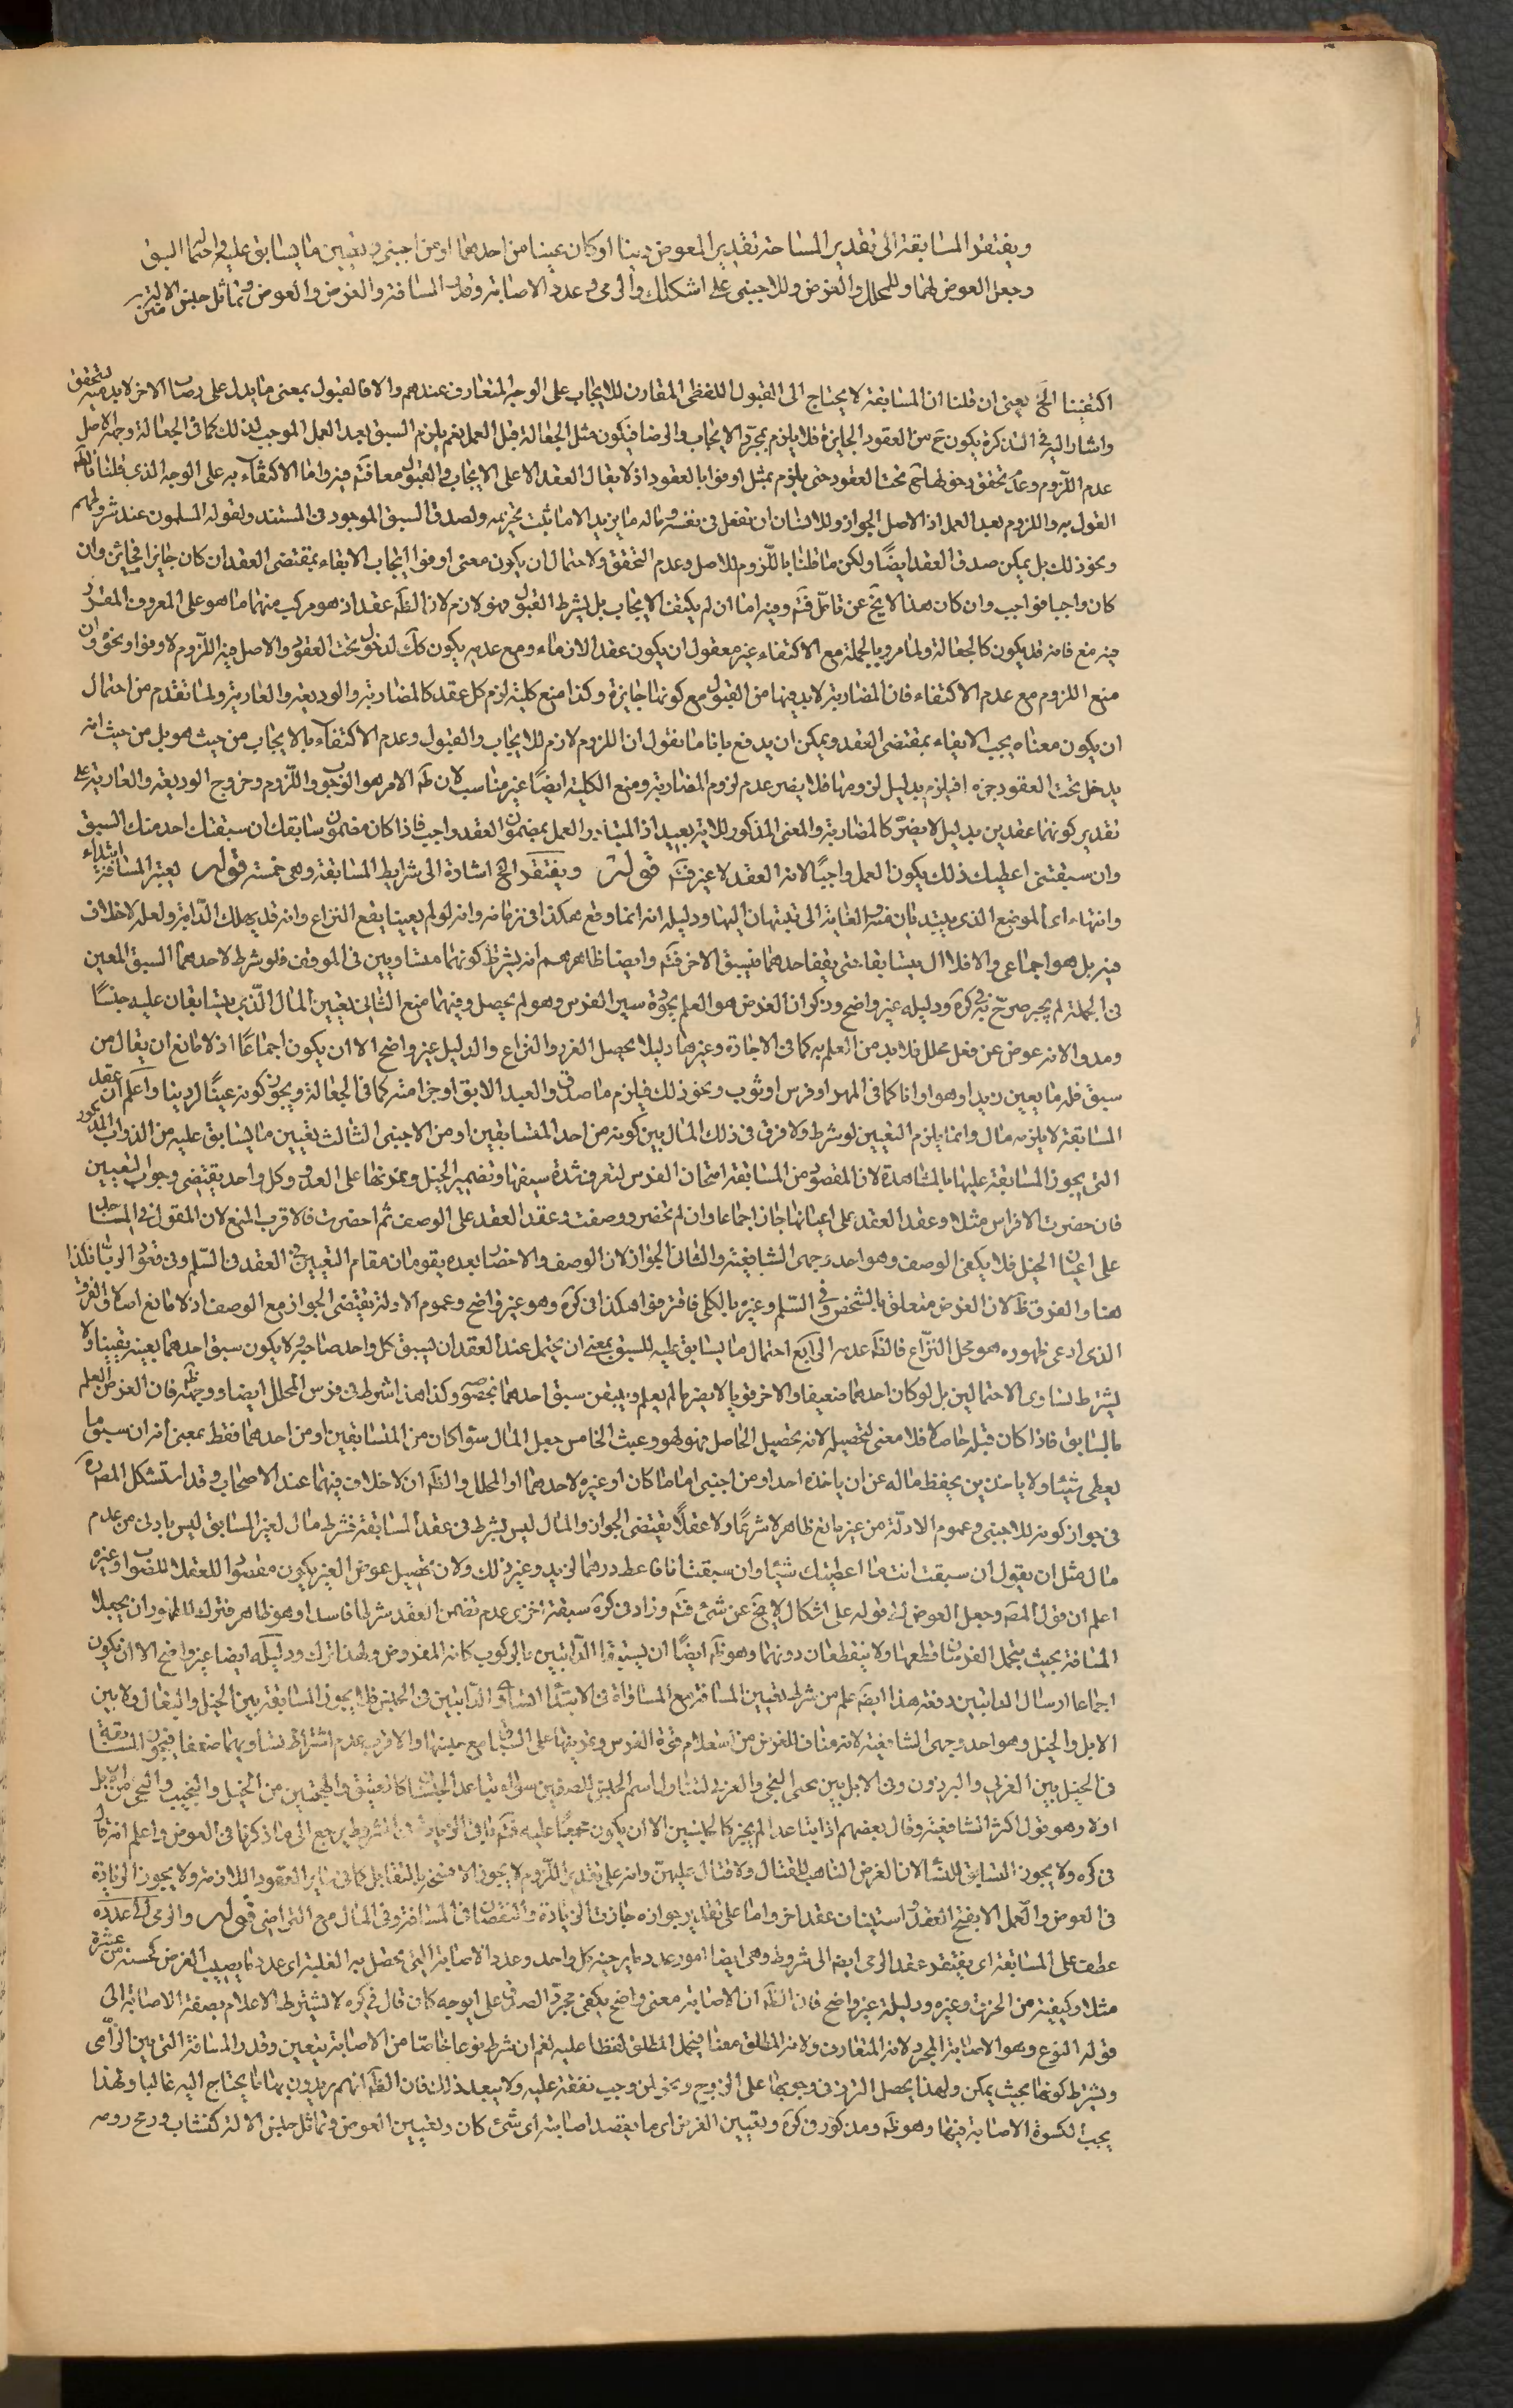 ويفتقر المسابقة الى تقدير المسافة وتقدير العوض دينا او كان عينا من احدهما او من اجنبى وتعيين ما يسابق عليه واحتمال السبق
وجعل العوض لهما وللمحلل والعوض وللاجنبى على اشكال والرمى وعدد الاصابة وقدر المسافة والغرض والعوض وتماثل جنس الالة
اكتفينا الخ يعنى ان قلنا ان المسابقة لا يحتاج الى القبول اللفظى المقارن للايجاب على الوجه المتعارف عندهم والا فالقبول بمعنى ما يدل على رضا الاخر لا بد منه لتحقق
واشار اليه فى التذكرة يكون ح من العقود الجايزة فلا يلزم بمجرد الايجاب والرضا فيكون مثل الجعالة قبل العمل نعم يلزم السبق بعد العمل الموجب لذلك كما فى الجعالة وجهه الاصل
عدم اللزوم وعدم تحقق دخولها تحت العقود حتى يلزم بمثل اوفوا بالعقود اذ لا يقال العقد الا على الايجاب والقبول معا فتم فيه واما الاكتفاء به على الوجه الذى قلنا فانه
القول به واللزوم بعد العمل اذ الاصل الجواز وللانسان ان يفعل فى نفسه وماله ما يريد الا ما ثبت تحريمه ولصدق السبق الموجود فى المستند ولقوله المسلمون عند شروطهم
ونحو ذلك بل يمكن صدق العقد ايضا ولكن ما قلنا باللزوم للاصل وعدم التحقق ولاحتمال ان يكون معنى اوفوا ايجاب الايفاء بمقتضى العقد ان كان جايزا فجائز وان
كان واجبا فواجب وان كان هذا لا يخ عن تامل فتم وفيه اما ان لم يكتف الايجاب بل يشرط القبول فهو لازم لان الظ عقد اذ هو مركب منهما ما هو على المعروف المقرر
فيه مع فانه قد يكون كالجعالة ولما مر وبالجملة مع الاكتفاء غير معقول ان يكون عقد الازماء ومع عدمه يكون كك لدخول تحت العقود والاصل فيه اللزوم لاوفوا ونحوه وان
منع اللزوم مع عدم الاكتفاء فان المضاربة لا بد فيها من القبول مع كونها جايزة وكذا منع كلية لزم كل عقد كالمضاربة والوديعة والعارية ولما تقدم من احتمال
ان يكون معناه يجب الايفاء بمقتضى العقد ويمكن ان يدفع بانا ما نقول ان اللزوم لازم للايجاب والقبول وعدم الاكتفاء بالايجاب من حيث هو بل من حيث انه
يدخل تحت العقود فيلزم بدليل لزومها فلا يضر عدم لزوم المضاربة ومنع الكلية ايضا غير مناسب لان ظ الامر هو الوجوب واللزوم وخروج الوديعة والعارية على
تقدير كونهما عقدين بدليل لا يضر كالمضاربة والمعنى المذكور للاية بعيد اذ المتبادر العمل بمضمون العقد واجب فاذا كان مضمون سابقك ان سبقتك احد منك السبق
وان سبقتنى اعطيك ذلك يكون العمل واجبا لانه العقد لا غير فتم قوله ويفتقر الخ اشارة الى شرايط المسابقة وهى خمسة قوله يعتبر المسافة ابتداء
وانتهاء اى الموضع الذى يبتديان منه والغاية التى ينتهيان اليها ودليله انه انما وقع هكذا فى زمانه وانه لو لم يعينا يقع النزاع وانه قد يهلك الدابة ولعله لا خلاف
فيه بل هو اجماعى والا فلا اذ يتسابقا حتى يقف احدهما فيسبق الاخر فتم وايضا ظاهرهم انه يشترط كونهما متساويين فى الموقف فلو شرط لاحدهما السبق المعين
فى الجملة لم يجز صرح به فى كره ودليله غير واضح وذكر ان الغرض هو العلم بجودة سير الفرس وهو لم يحصل وفيهما منع الثانى تعيين المال الذى يتسابقان عليه جنسا
وقدرا لانه عوض عن فعل محلل فلا بد من العلم به كما فى الاجارة وغيرها ولئلا يحصل الغرر والنزاع والدليل غير واضح الا ان يكون اجماعا اذ لا مانع ان يقال من
سبق فله ما يعين زيد او هو او انا كما فى المهر او فرس او ثوب ونحو ذلك فيلزم ما صدق والعبد الابق او جزاء منه كما فى الجعالة ويجوز كونه عينا او دينا واعلم ان عقد
المسابقة لا يلزمه مال وانما يلزم التعيين لو شرط ولا فرق فى ذلك المال بين كونه من احد المتسابقين او من الاجنبى الثالث تعيين ما يسابق عليه من الدواب
التى يجوز المسابقة عليها بالمشاهدة لان المقصود من المسابقة امتحان الفرس لتعرف شدة سيرها وتضمير الخيل وتمرنها على العدو وكل واحد يقتضى وجوب التعيين
فان حضرت الافراس مثلا وعقد العقد على اعيانها جاز اجماعا وان لم تحضر ووصفت وعقد العقد على الوصف ثم احضرت فالاقرب المنع لان المعول فى المسابقة
على اعيان الخيل فلا يكفى الوصف وهو احد وجهى الشافعية والثانى الجواز لان الوصف والاحضار بعده يقومان مقام التعيين فى العقد فى السلم وفى عقود الربا فكذا
هنا والفرق ظ لان الغرض متعلق بالشخص وفى السلم وغيره بالكلى فافترقوا هكذا فى كره وهو غير واضح وعموم الادلة يقتضى الجواز مع الوصف اذ لا مانع اصلا والفرق
الذى ادعى ظهوره هو محل النزاع فالظ عدمه الرابع احتمال ما يسابق عليه للسبق بمعنى ان يحتمل عند العقد ان يسبق كل واحد صاحبه ولا يكون سبق احدهما بعينه يقينا ولا
يشترط تساوى الاحتمالين بل لو كان احدهما ضعيفا والاخر قويا لا يضر ما لم يعلم ويتيقن سبق احدهما بخصوصه وكذا هذا شرط فى فرس المحلل ايضا ووجهه ظ فان الغرض العلم
بالسابق فاذا كان قبله حاصلا فلا معنى لتحصيله لانه تحصيل الحاصل فهو لهو وعبث الخامس جعل المال سواء كان من المتسابقين او من احدهما فقط بمعنى انه ان سبق ما
يعطى شيئا ولا ياخذ بل يحفظ ماله عن ان ياخذه احد او من اجنبى اماما كان او غيره لاحدهما او المحلل والظ ان لا خلاف فيهما عند الاصحاب وقد استشكل المص ره
فى جواز كونه للاجنبى وعموم الادلة من غير مانع ظاهر لا شرعا ولا عقلا يقتضى الجواز والمال ليس بشرط فى عقد المسابقة فشرط مال لغير السابق ليس بادنى من عدم
مال مثل ان يقول ان سبقت انت ما اعطيتك شيئا وان سبقت انا فاعط درهما لزيد وغير ذلك ولان تحصيل عوض الغير يكون مقصودا للعقلاء للثواب وغيره
اعلم ان قول المص وجعل العوض الى قوله على اشكال لا يخ عن شئ فتم وزاد فى كره سبعة اخرى عدم تضمن العقد شرطا فاسدا وهو ظاهر فترك للظهور ان يجعلا
المسافة بحيث يحتمل الفرسان قطعها ولا ينقطعان دونها وهو ظ ايضا ان يستبقا الدابتين بالركوب كانه المفروض ولهذا ترك ودليله ايضا غير واضح الا ان يكون
اجماعا ارسال الدابتين دفعة هذا ايضا علم من شرط تعيين المسافة مع المساواة فى الابتداء تساوى الدابتين فى الجنس فلا يجوز المسابقة بين الخيل والبغال ولا بين
الابل والخيل وهو احد وجهى الشافعية لانه مناف للغرض من استعلام قوة الفرس وتمرينها على السباق مع جنسها والاقرب عدم اشتراط تساويهما صنفا فيجوز المسابقة
فى الخيل بين العربى والبرذون وفى الابل بين البختى والعربى لتناول اسم الجنس للصنفين سواء تباعد الجنسان كالعتيق والهجين من الخيل والنجيب والبختى من الابل
اولا وهو قول اكثر الشافعية وقال بعضهم اذا تباعدا لم يجز كالجنسين الا ان يكون مجمعا عليه فتم باقى الشروط يرجع الى ما ذكرنا فى العوض واعلم انه قال
فى كره ولا يجوز التسابق للنساء لان الغرض التاهب للقتال ولا قتال عليهن وانه على تقدير اللزوم لا يجوز الا فسخه بالتقايل كما فى ساير العقود اللازمة ولا يجوز الزيادة
فى العوض والعمل الا بفسخ العقد واستيناف عقد اخر واما على تقدير جوازه جازت الزيادة والنقصان فى المسافة وفى المال مع التراضى قوله والرمى الى عدد
عطف على المسابقة اى يفتقر عقد الرمى ايضا الى شروط وهى ايضا امور عدد ما يرميه كل واحد وعدد الاصابة التى تحصل به الغلبة اى عدد ما يصيب الغرض كخمسة من عشرة
مثلا وكيفيته من الخرق وغيره ودليله غير واضح فان الظ ان الاصابة معنى واضح يكفى مجرد الصدق على اى وجه كان قال فى كره لا يشترط الاعلام بصفة الاصابة الى
قوله النوع وهو الاصابة المجرد لانه المتعارف ولانه المطلق معنا فيحمل المطلق لفظا عليه نعم ان شرط نوعا خاصا من الاصابة يتعين وقدر المسافة التى بين الرامى
ويشترط كونها بحيث يمكن ولهذا يحصل
يجب الاصابة فيهما وهو ظ ومذكور فى كره وتعيين الغرض اى ما يقصد اصابته اى شئ كان وتعيين العوض وتماثل جنس الالة كنشاب ورمح رومى